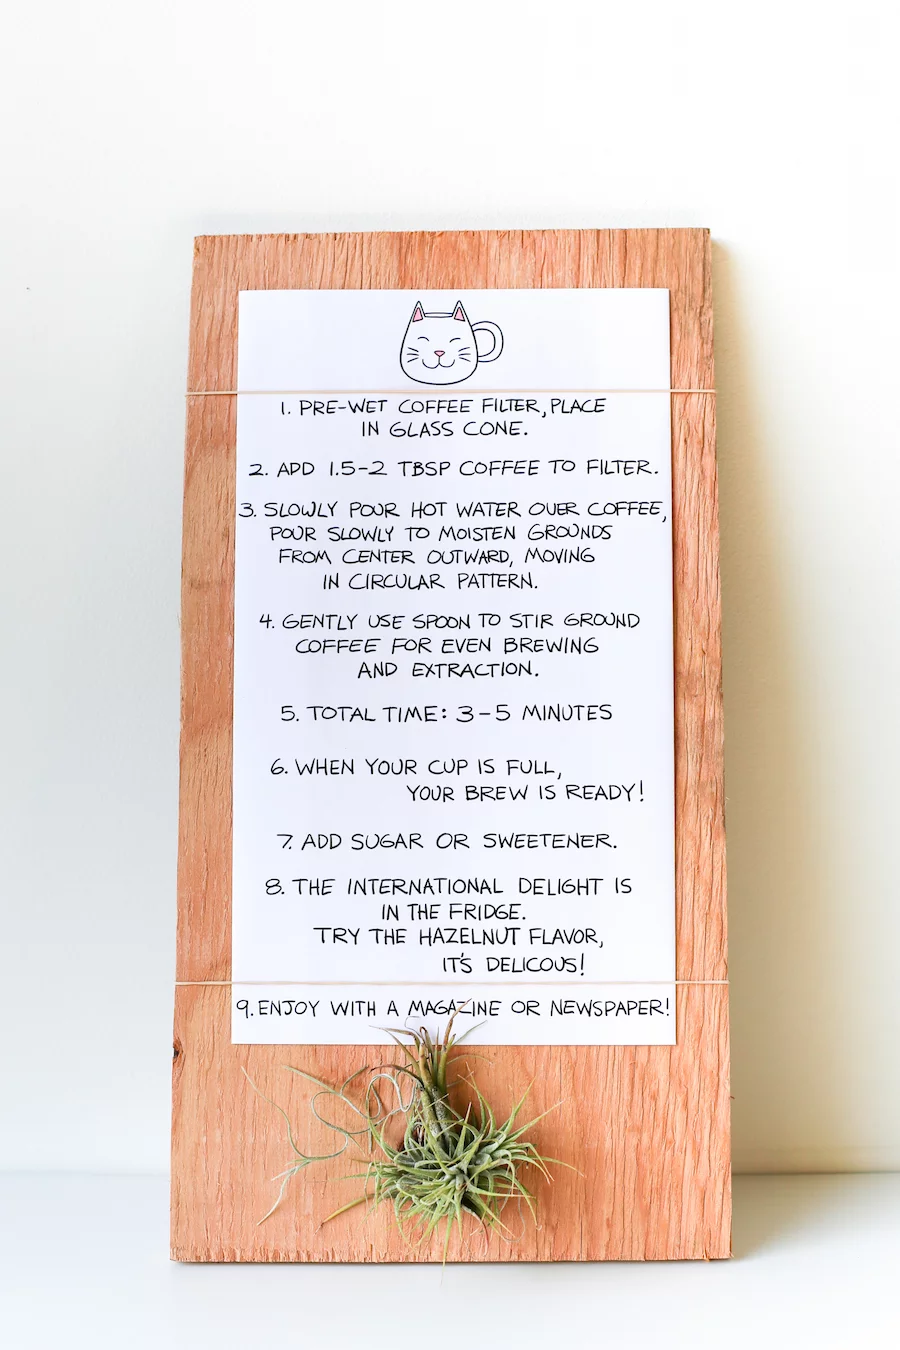 1. PRE-WET COFFEE FILTER, PLACE
IN GLASS CONE.
2. ADD 1.5-2 TBSP COFFEE TO FILTER.
3. SLOWLY POUR HOT WATER OVER COFFEE,
POUR SLOWLY TO MOISTEN GROUNDS
FROM CENTER OUTWARD, MOVING
IN CIRCULAR PATTERN.
4. GENTLY USE SPOON TO STIR GROUND
COFFEE FOR EVEN BREWING
AND EXTRACTION.
5. TOTAL TIME: 3-5 MINUTES
6. WHEN YOUR CUP IS FULL,
YOUR BREW IS READY!
7. ADD SUGAR OR SWEETENER.
8. THE INTERNATIONAL DELIGHT IS
IN THE FRIDGE.
TRY THE HAZELNUT FLAVOR,
IT'S DELICOUS!
9. ENJOY WITH A MAGAZINE OR NEWSPAPER!